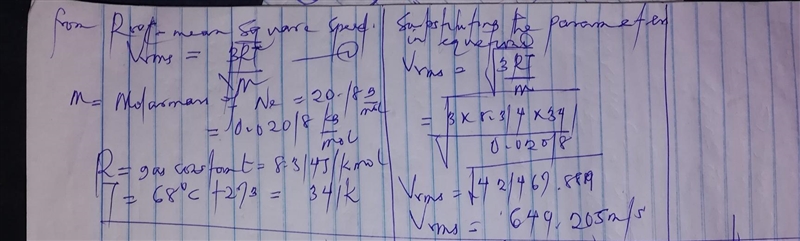 from Root-mean Square Speed.
Vrms = √3RT/M — ①
M = Molar mass = Ne = 20.18 g/mol
= 0.02018 kg/mol
R = gas constant = 8.314J/kmol
T = 68°C + 273 = 341k
Substituting the parameter
in equation ①
Vrms = √3RT/m
= √3 × 8.314 × 341/0.02018
Vrms = √421469.8
Vrms = 649.205m/s